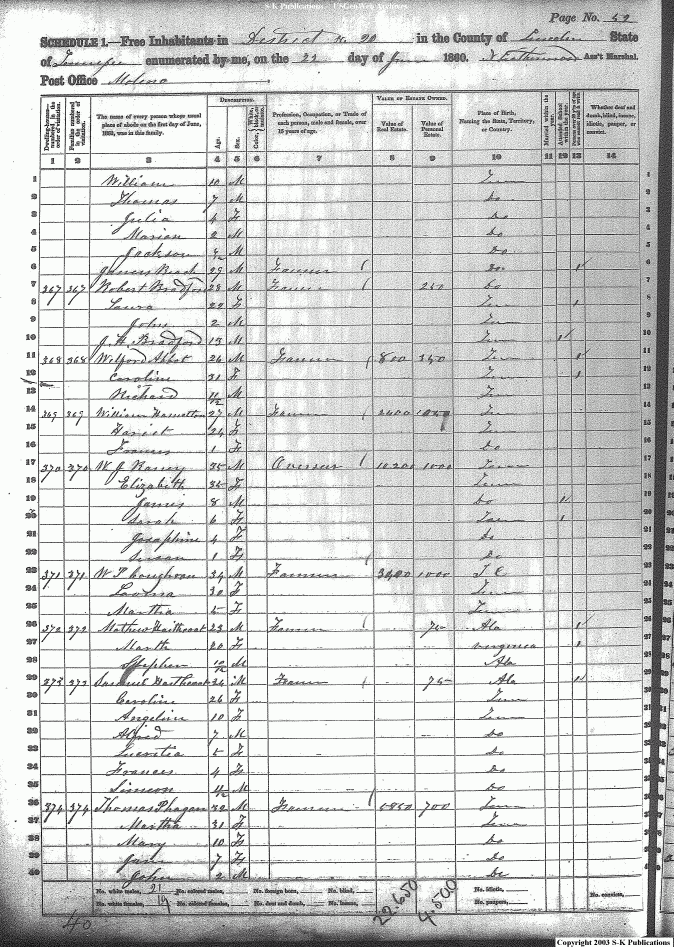 S-K Publications - USGenWeb Archives
Page No. 52
SCHEDULE 1.—Free Inhabitants in District No 20 in the County of Lincoln State
of Tennessee enumerated by me, on the 22 day of June 1860. Ass't Marshal.
Post Office Molino
DESCRIPTION. VALUE OF ESTATE OWNED.
Dwelling-houses numbered in the order of visitation. Families numbered in the order of visitation. The name of every person whose usual place of abode on the first day of June, 1860, was in this family. Age. Sex. Color, Profession, Occupation, or Trade of each person, male and female, over 15 years of age. Value of Real Estate. Value of Personal Estate. Place of Birth, Naming the State, Territory, or Country. Married within the year. Attended School within the year. Whether deaf and dumb, blind, insane, idiotic, pauper, or convict.
1 2 3 4 5 6 7 8 9 10 11 12 13 14
1 William 10 M Tenn 1
2 Thomas 7 M Do 2
3 Julia 4 F Do 3
4 Marian 2 M Do 4
5 Jackson M Do 5
6 Beach 29 M Farmer Do 6
7 367 367 Robert Bradford 28 M Farmer 250 Do 7
8 Laura 22 F Tenn 8
9 John 2 M Tenn 9
10 J. H. Bradford 13 M Tenn 10
11 368 368 Wilford Abbot 26 M Farmer 800 350 Tenn 11
12 Caroline 31 F Tenn 12
13 Richard M Tenn 13
14 369 369 William Hamelton 27 M Farmer 2400 Tenn 14
15 Hariet 24 F Tenn 15
16 Frances 1 F Do 16
17 370 370 W. J. 35 M Overseer 10200 1000 Tenn 17
18 Elizabeth 35 F Tenn 18
19 James 8 M Do 19
20 Sarah 6 F Tenn 20
21 Josaphine 4 F Do 21
22 Susan 1 F Do 22
23 371 371 W P 34 M Farmer 1000 23
24 Lovina 30 F Tenn 24
25 Martha 5 F Tenn 25
26 372 372 Mathew Haithcoat 23 M Farmer 75 Ala 26
27 Marth 20 F Virginia 27
28 Stephen M Ala 28
29 373 373 Samuel Haithcoat 34 M Farmer 75 Ala 29
30 Caroline 26 F Tenn 30
31 Angeline 10 F Tenn 31
32 Alfred 7 M Do 32
33 Lucretia 5 F Do 33
34 Frances 4 F Do 34
35 Simeon M Do 35
36 374 374 Thomas Phagan 32 M Farmer 5850 700 Tenn 36
37 Martha 31 F Tenn 37
38 Mary 10 F Do 38
39 Jane 7 F Do 39
40 John 2 M Do 40
No. white males, 21 No. colored males, No. foreign born, No. blind, No. idiotic, No. convicts,
No. white females, 19 No. colored females, No. deaf and dumb, No. insane, No. paupers,
40 22.650 4.500
Copyright 2003 S-K Publications